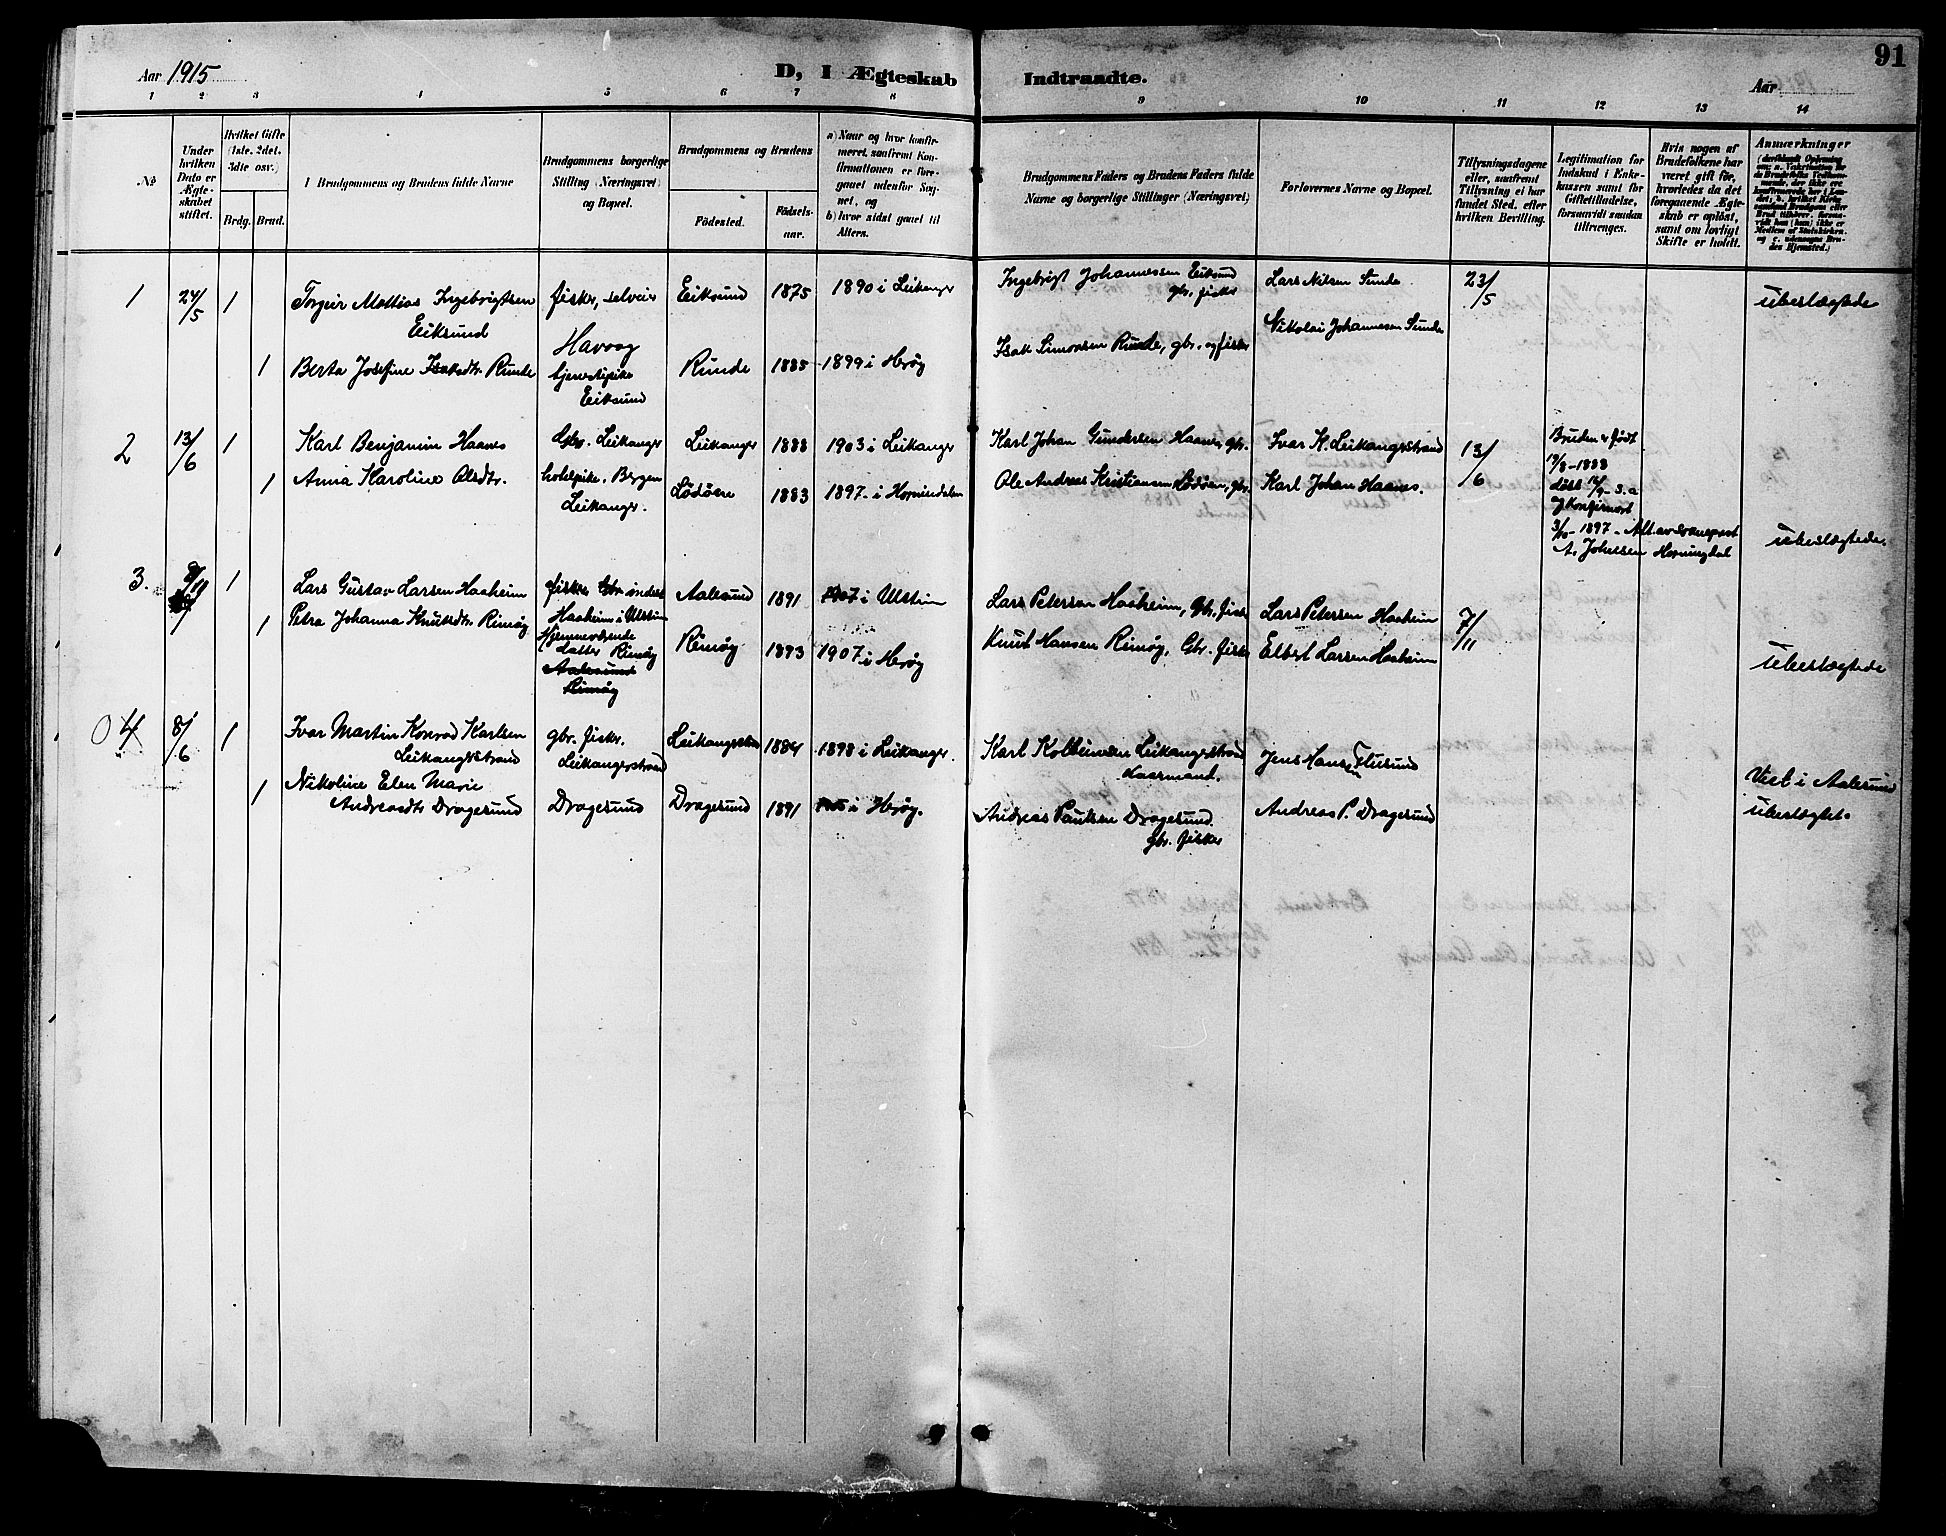 91
Aar 1915
D, I Ægteskab Indtraadte.
Aar
1 2 3 4 5 6 7 8 9 10 11 12 13 14
No
Under hvilken Dato er Ægteskabet stiftet.
Hvilket Gifte (1ste. 2det. 3dte osv.)
Brdg. Brud.
I Brudgommens og Brudens fulde Navne
Brudgommens borgerlige Stilling (Næringsvei) og Bopæl.
Brudgommens og Brudens
Födested.
Födselsaar.
a) Naar og hvor konfirmeret, saafremt Konfirmationen er foregaaet udenfor Sognet, og
b) hvor sidst gaaet til Alters.
Brudgommens Faders og Brudens Faders fulde Navne og borgerlige Stillinger (Næringsvei)
Forlovernes Navne og Bopæl.
Tillysningsdagene eller, saafremt Tillysning ei har fundet Sted, efter hvilken Bevilling.
Legitimation for Indskud i Enkekassen samt for Giftetilladelse, forsaavidt saadan tiltrænges.
Hvis nogen af Brudefolkene har været gift før, hvorledes da det foregaaende Ægteskab er oplöst, samt om lovligt Skifte er holdt.
Anmærkninger
1 24/5 1 Torgeir Mattias Ingebrigtsen fisker, selveier Eiksund 1875 1890 i Leikanger Ingebrigt Johannessen Eiksund Lars Nilsen Sunde 23/5 ubeslægtede
Eiksund gbr. fisker
Havaag Nikolai Johannesen Sunde
1 Berta Josefine Isaksdtr. Runde tjenestpike Runde 1885 1899 i Herøy Isak Simonsen Runde, gbr. og fisker
Eiksund
2 13/6 1 Karl Benjamin Haanes Gbr. Leikanger Leikanger 1888 1903 i Leikanger Karl Johan Gundersen Haanes, gbr. Ivar K. Leikangerstrand 13/6 Bruden er født
1 Anna Karoline Olsdtr. hotelpike, Bergen Lödöen 1883 1897 i Hornindalen Ole Andreas Kristiansen Lödöen, gbr. Karl Johan Haanes.
Leikanger.
Konfirmert
3/10 - 1897 - Att. av sogneprest
A. Johnssen Hornindal ubeslægtede.
3. 1 Lars Gustav Larsen Haaheim fisker Aalesund 1891 1907 i Ulstein Lars Petersen Haaheim, Gbr. fisker Lars Petersen Haaheim 7/11
Haaheim i Ulstein
1 Petra Johanna Knutsdtr. Rimøy Hjemmeværende Rimøy 1893 1907 i Herøy Knut Hansen Rimøy, Gbr. fisker Elbert Larsen Haaheim ubeslægtede
datter Rimøy
Aalesund
Rimøy
04 8/6 1 Ivar Martin Konrad Karlsen gbr. fisker. Leikangerstrand 1884 1898 i Leikanger. Karl Kolbeinsen Leikangerstrand Jens Hansen Flusund
Leikangerstrand Leikangerstrand kaarmand. Viet i Aalesund
1 Nikoline Elen Marie
Andreasdtr Dragesund Dragesund Dragesund 1891 1905 i Herøy. Andreas Paulsen Dragesund. Andreas P. Dragesund ubeslægtet.
gbr. fisker